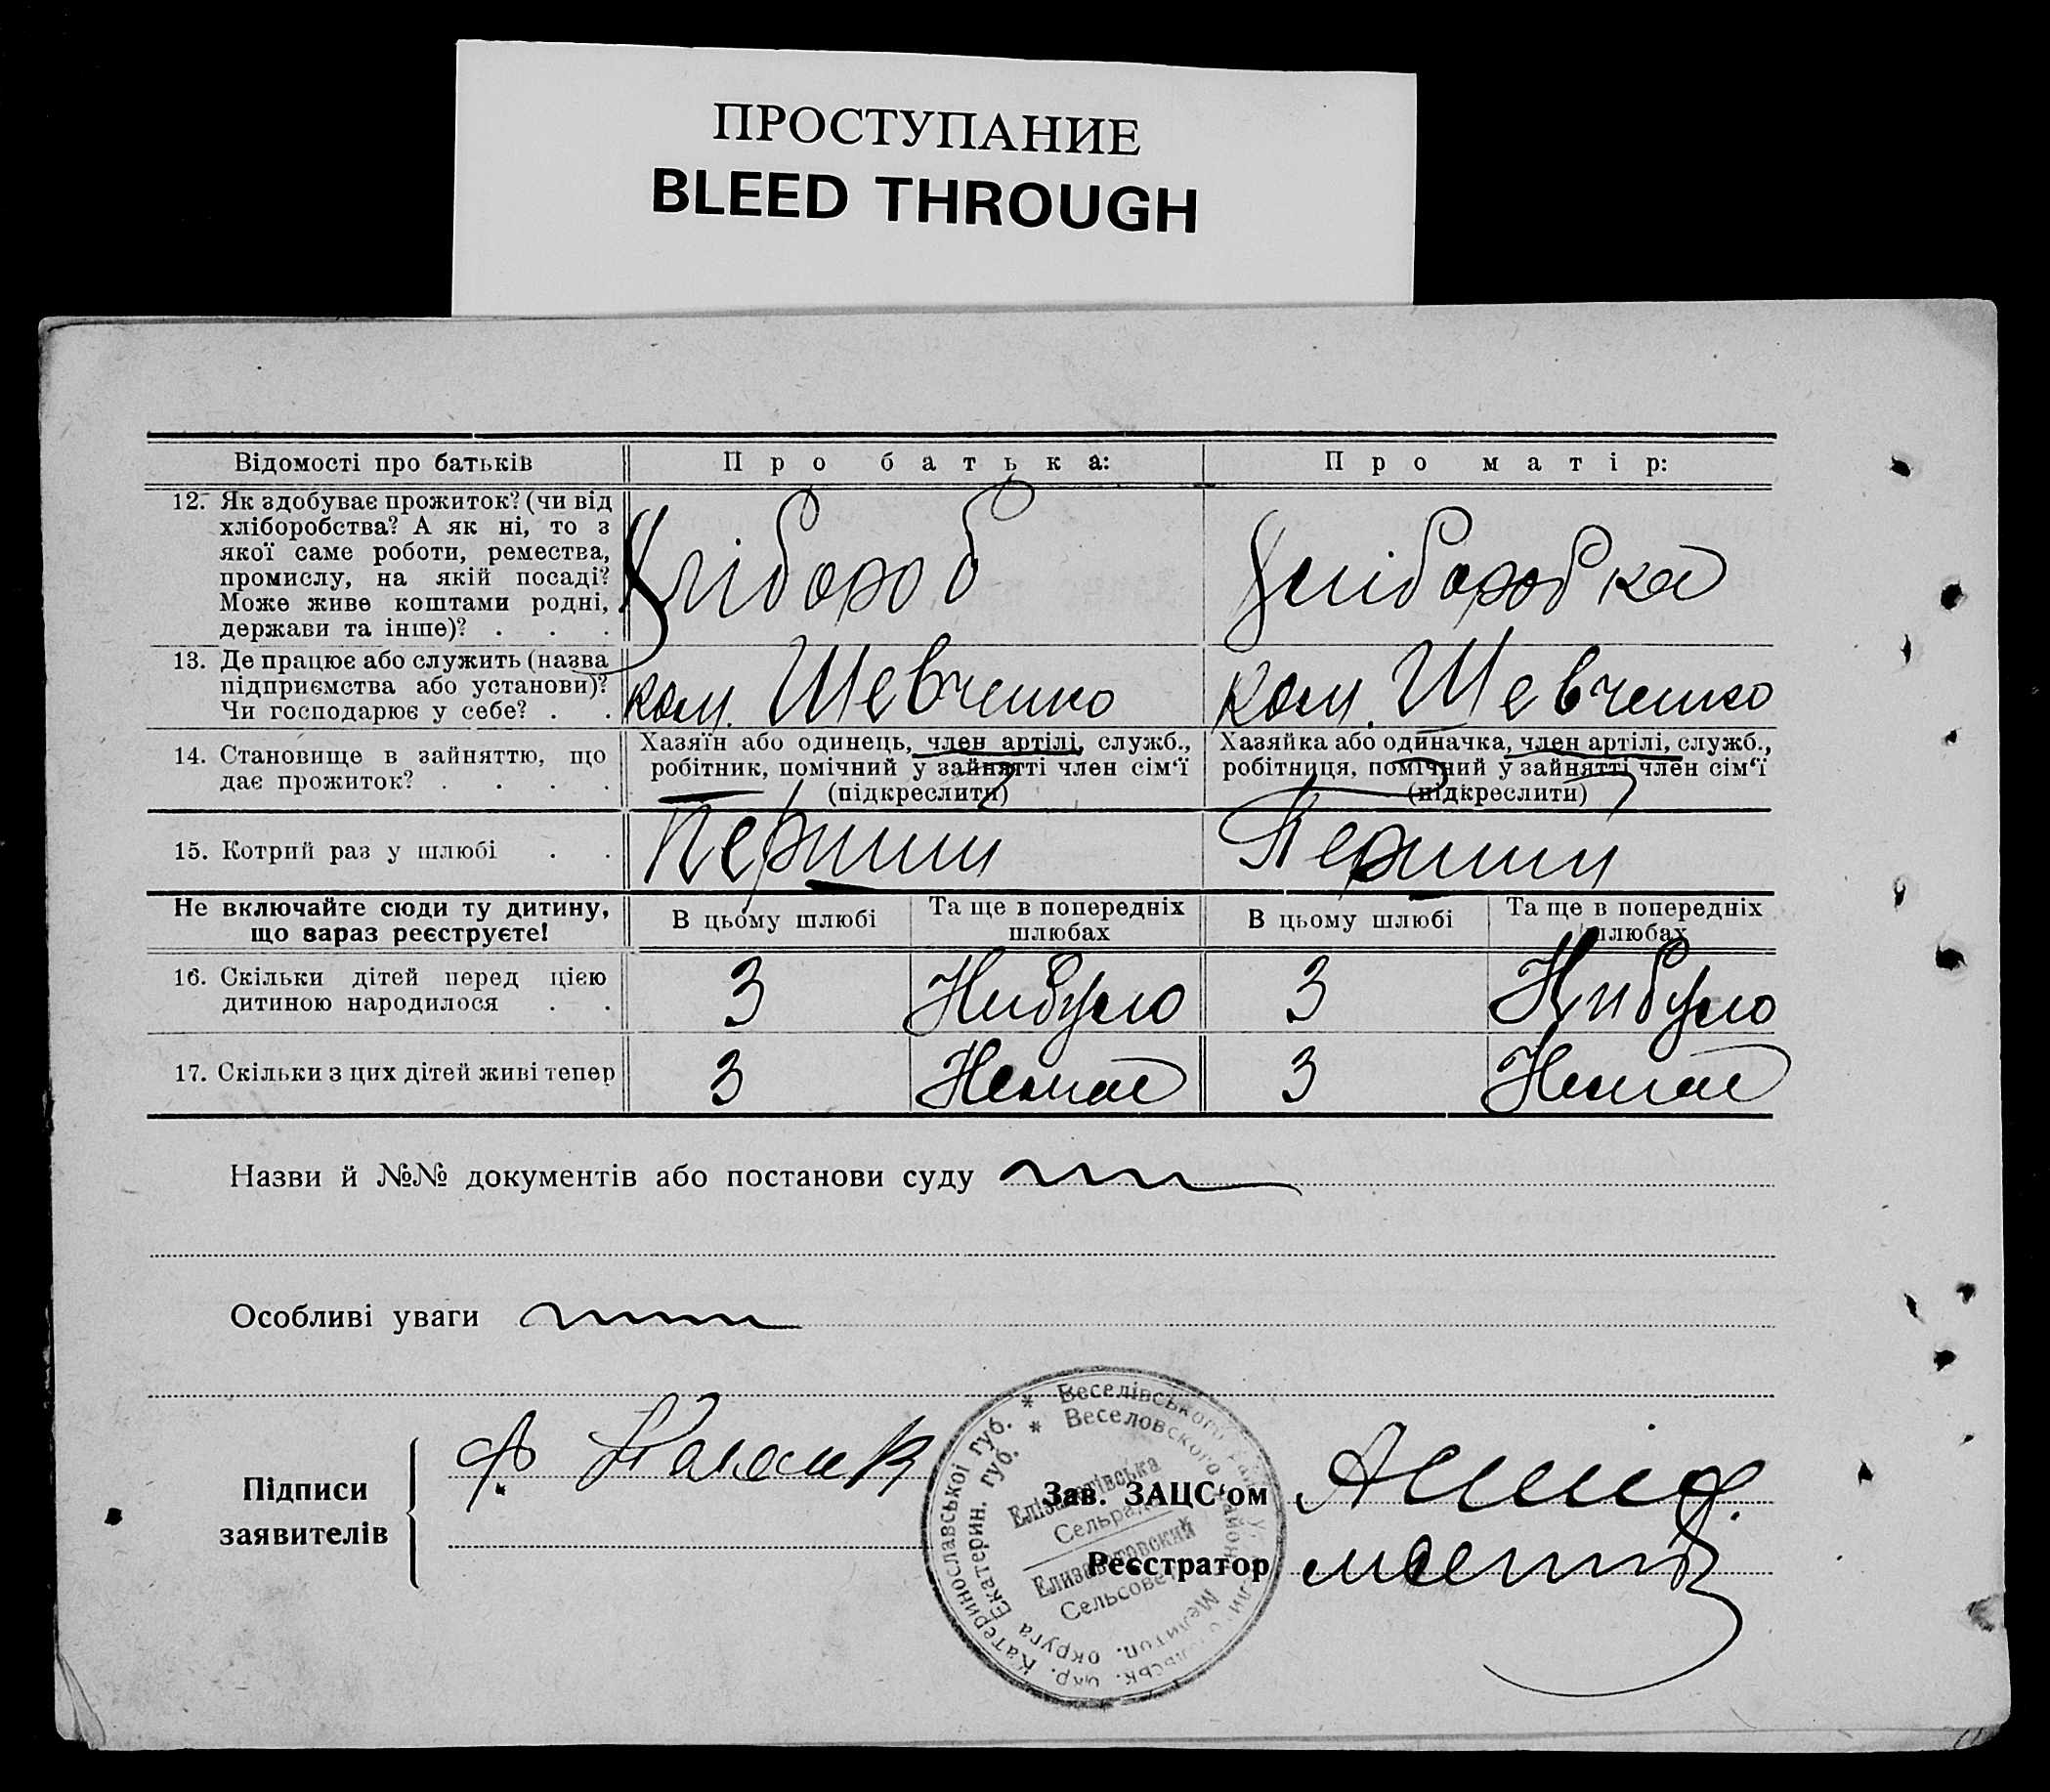 ПРОСТУПАНИЕ
BLEED THROUGH
Відомості про батьків
Про батька:
Про матір:
12. Як здобуває прожиток? (чи від
хліборобства? А як ні, то з
якої саме роботи, ремества,
промислу, на якій посаді?
Може живе коштами родні,
держави та інше)? . . .
Хлібороб
Хліборобка
13. Де працює або служить (назва
підприємства або установи)?
Чи господарює у себе? . .
ком. Шевченко
ком. Шевченко
14. Становище в зайняттю, що
дає прожиток? . . . .
Хазяїн або одинець, член артілі, служб.,
робітник, помічний у зайнятті член сім‘ї
(підкреслити)
Хазяйка або одиначка, член артілі, служб.,
робітниця, помічний у зайнятті член сім‘ї
(підкреслити)
15. Котрий раз у шлюбі . .
Перший
Перший
Не включайте сюди ту дитину,
що зараз реєструєте!
В цьому шлюбі
Та ще в попередніх
шлюбах
В цьому шлюбі
Та ще в попередніх
шлюбах
16. Скільки дітей перед цією
дитиною народилося . .
3
Нибуло
3
Нибуло
17. Скільки з цих дітей живі тепер
3
Немає
3
Немає
Назви й №№ документів або постанови суду
Особливі уваги
Підписи
заявителів
Ф.
Зав. ЗАЦС‘ом
Реєстратор
* Веселівського Катеринославської губ.
* Веселовского Мелитоп. округа Екатерин. губ.
Елізаветівська
Сельрада
Елизаветовский
Сельсовет